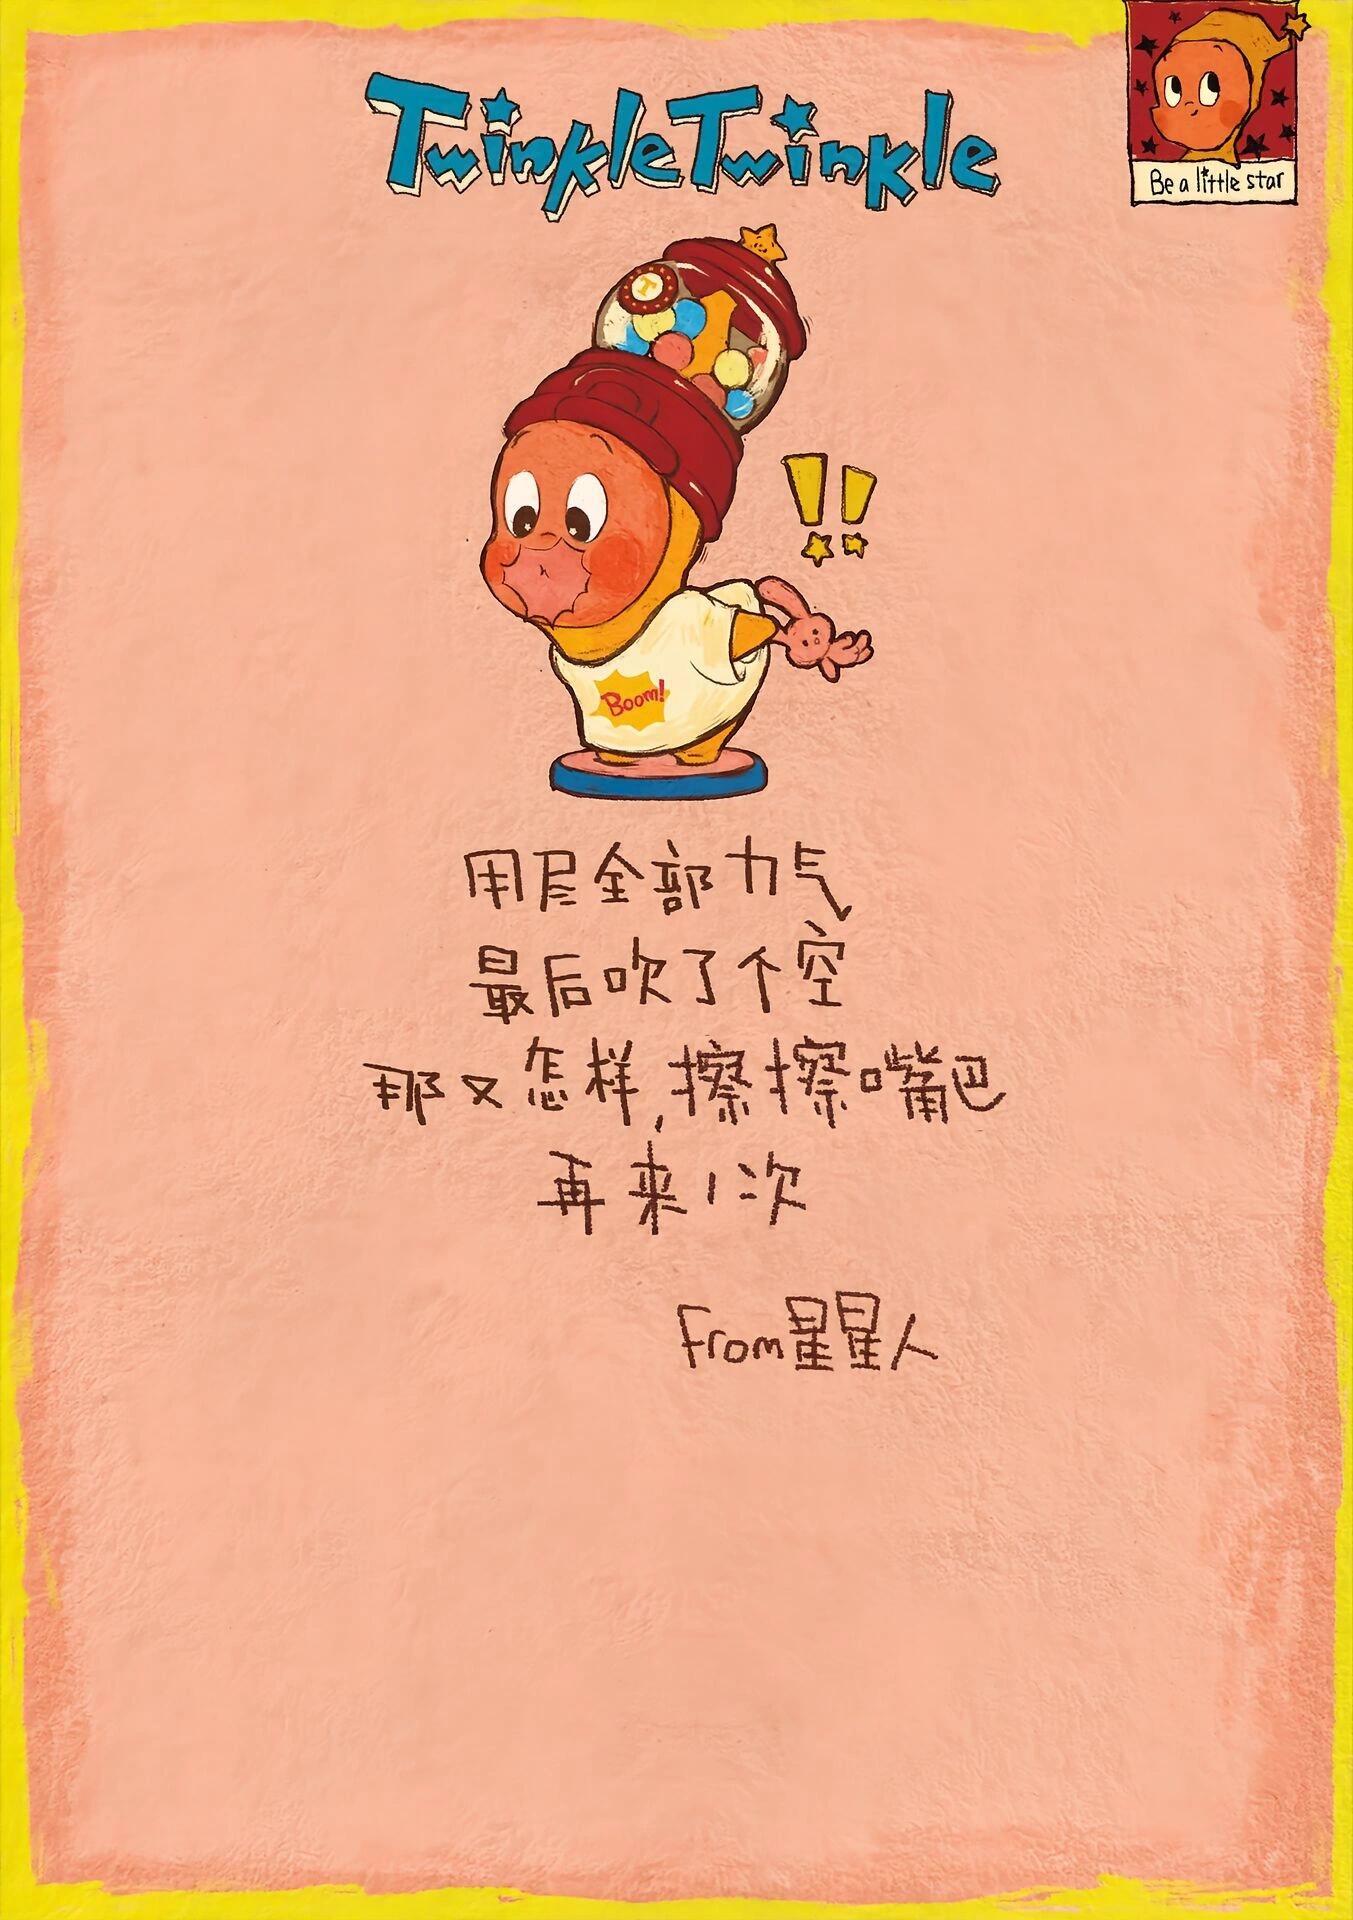 Twinkle Twinkle
Be a little star
T
!!
Boom!
用尽全部力气
最后吹了个空
那又怎样,擦擦嘴巴
再来1次
From星星人